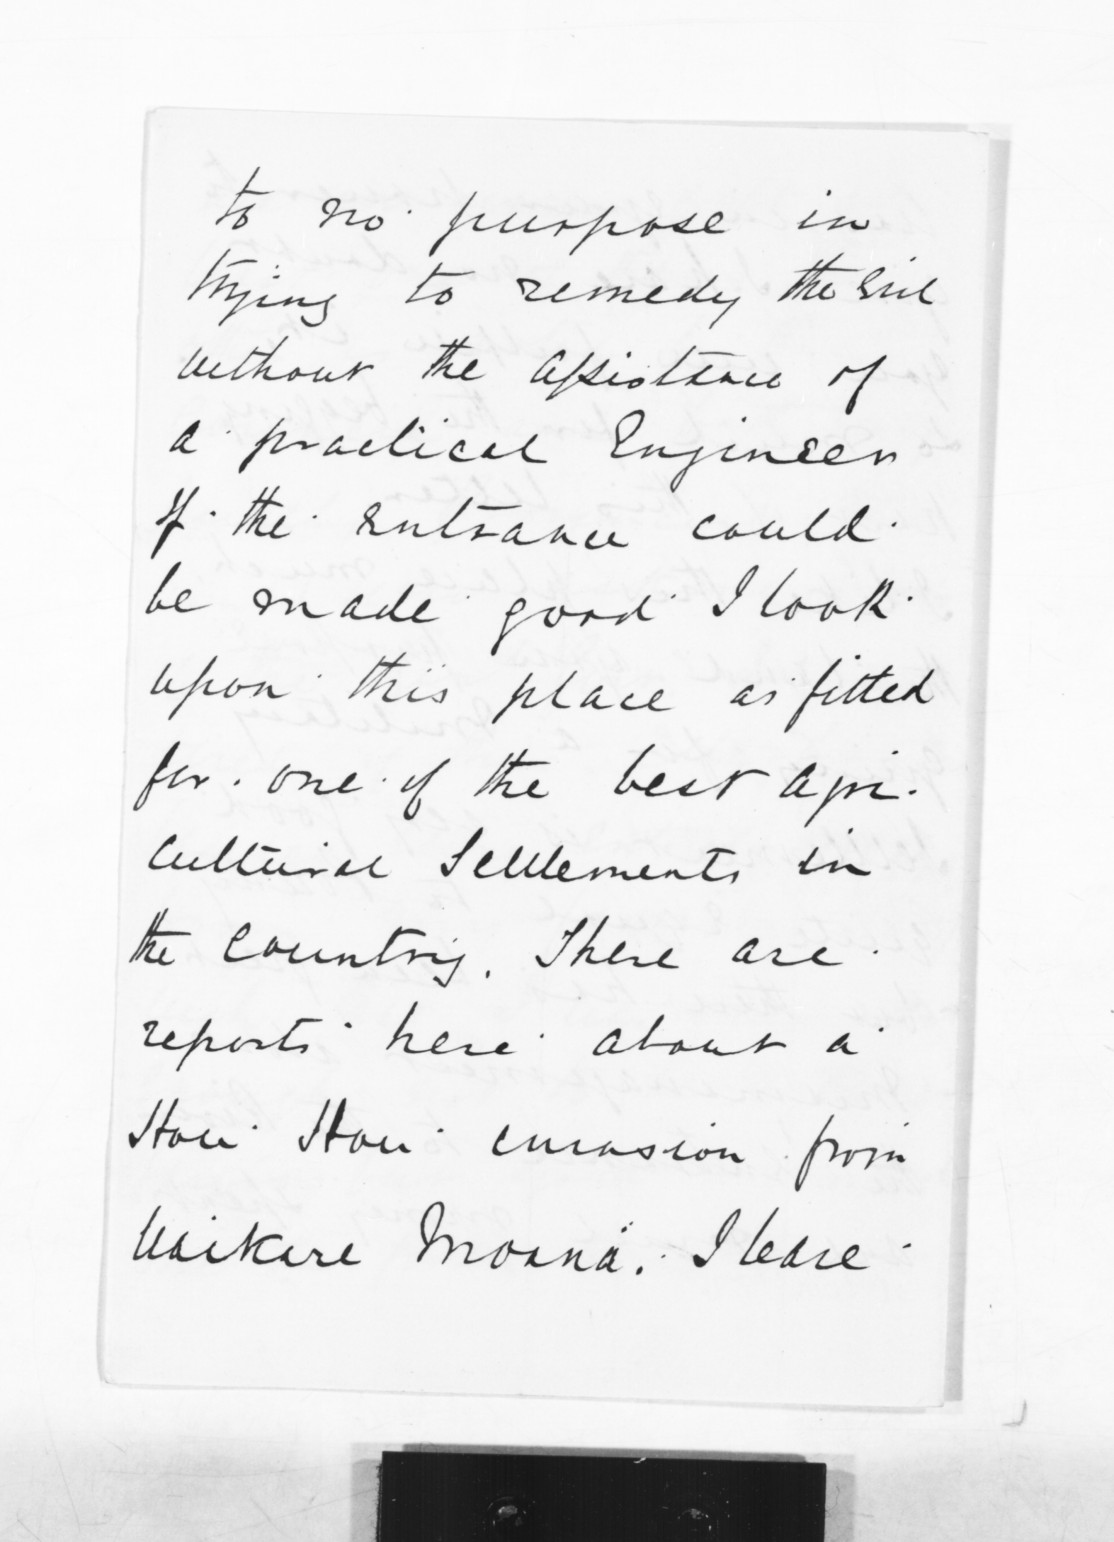 to no purpose in
trying to remedy the Evil
without the assistance of
a practical Engineer
If the entrance could
be made good I look
upon this place as fitted
for one of the best Agri-
cultural Settlements in
the Country. There are
reports here about a
Hau Hau invasion from
Waikare Moana. I leave